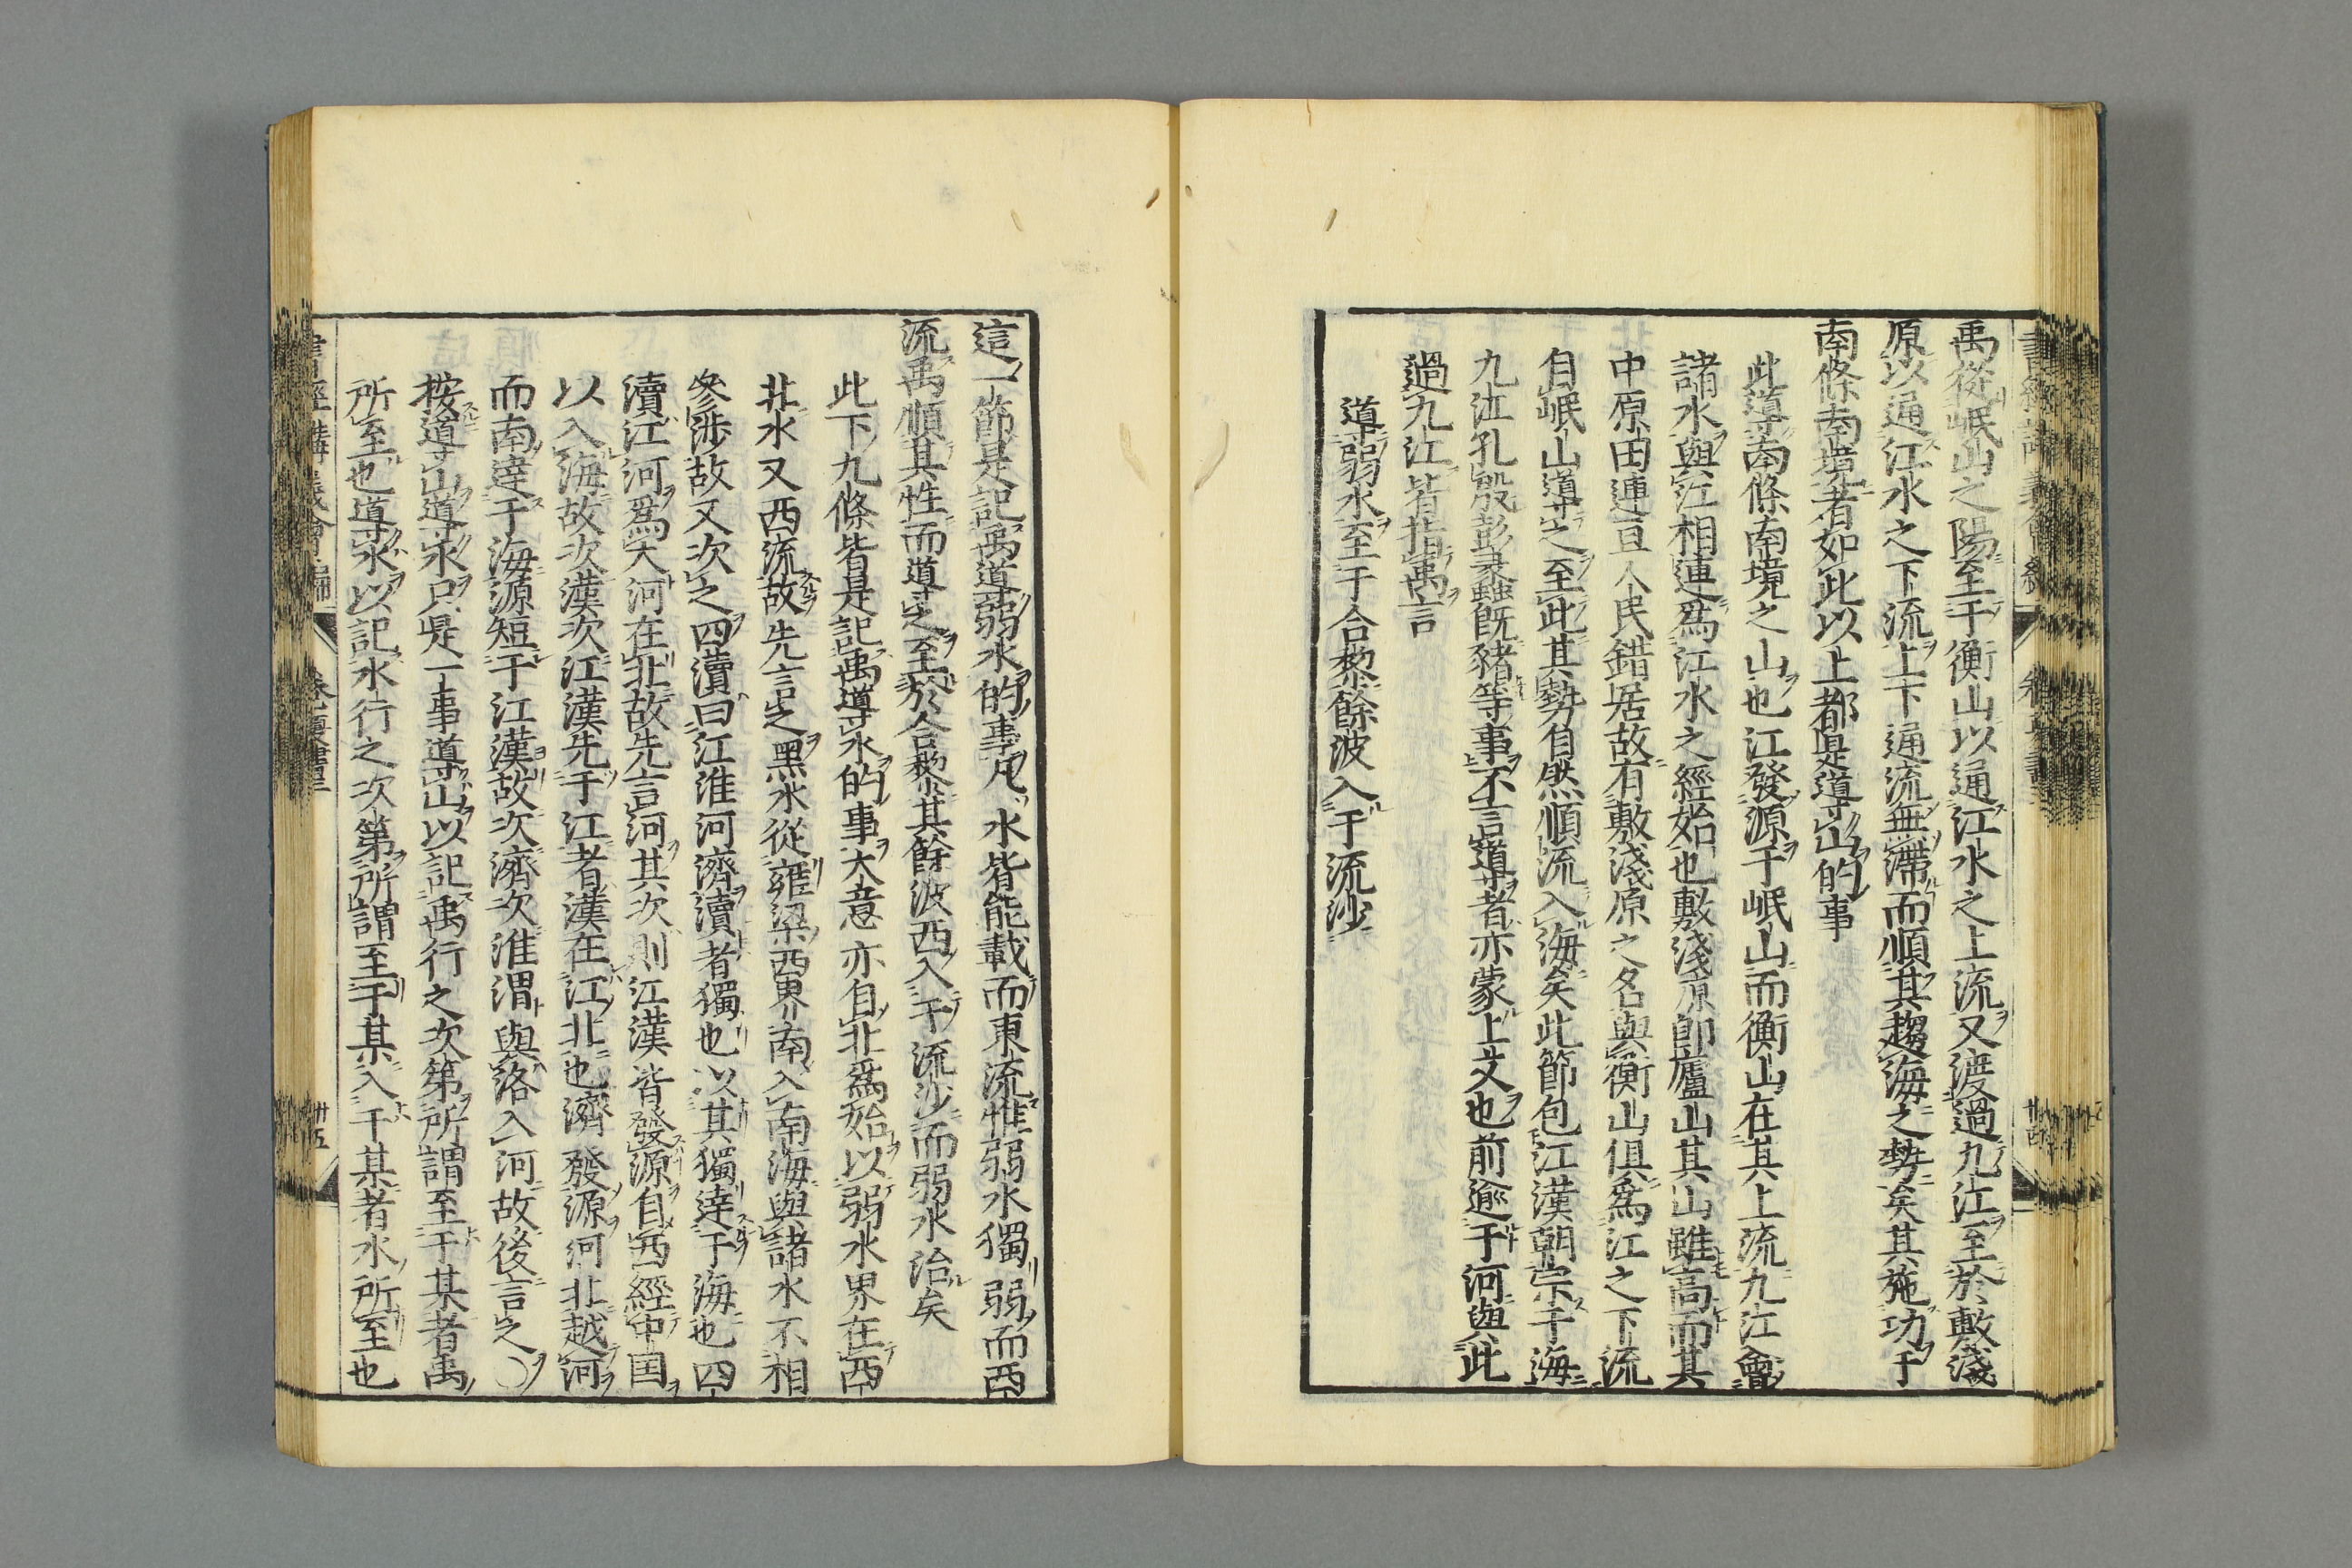 禹從岷山之陽至于衡山以通江水之上流又渡過九江至於敷淺
原以通江水之下流上下通流無滯而順其趨海之勢矣其施功于
南條南境者如此以上都是導山的事
此導南條南境之山也江發源于岷山而衡山在其上流九江會
諸水與江相連爲江水之經始也敷淺原卽廬山其山雖高而其
中原田連亘人民錯居故有敷淺原之名與衡山俱爲江之下流
自岷山導之至此其勢自然順流入海矣此節包江漢朝宗于海
九江孔殷彭蠡既豬等事不言導者亦蒙上文也前逾于河與此
過九江皆指禹言
導弱水至于合黎餘波入于流沙
這一節是記禹導弱水的事凡水皆能載而東流惟弱水獨弱而西
流禹順其性而導之至於合黎其餘波西入于流沙而弱水治矣
此下九條皆是記禹導水的事大意亦自北爲始以弱水界在西
北水又西流故先言之黑水從雍梁西界南入南海與諸水不相
參涉故又次之四瀆曰江淮河濟瀆者獨也以其獨達于海也四
瀆江河爲大河在北故先言河其次則江漢皆發源自西經中国
以入海故次漢次江漢先于江者漢在江北也濟發源河北越河
而南達于海源短于江漢故次濟次淮渭與洛入河故後言之〇
按導山導水只是一事導山以記禹行之次第所謂至于某者禹
所至也導水以記水行之次第所謂至于某入于某者水所至也
書經講義會編 卷之三 夏書 卅五